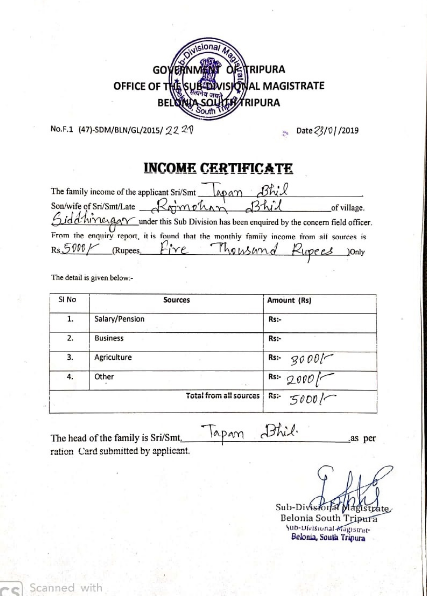 Sub-Divisional Magistrate
GOVERNMENT OF TRIPURA
OFFICE OF THE SUB-DIVISIONAL MAGISTRATE
BELONIA SOUTH TRIPURA
No.F.1 (47)-SDM/BLN/GL/2015/ 2229 Date 23/01/2019
INCOME CERTIFICATE
The family income of the applicant Sri/Smt Tapan Bhil
Son/wife of Sri/Smt/Late Rajmohan Bhil of village.
Siddhinagar under this Sub Division has been enquired by the concern field officer.
From the enquiry report, it is found that the monthly family income from all sources is
Rs. 5000/- (Rupees, Five Thousand Rupees )Only
The detail is given below:-
Sl No Sources Amount (Rs)
1. Salary/Pension Rs:-
2. Business Rs:-
3. Agriculture Rs:- 3000/-
4. Other Rs:- 2000/-
Total from all sources Rs:- 5000/-
The head of the family is Sri/Smt, Tapan Bhil. ,as per
ration Card submitted by applicant.
Sub-Divisional Magistrate
Belonia South Tripura
Sub-Divisional Magistrate
Belonia, South Tripura
CS Scanned with